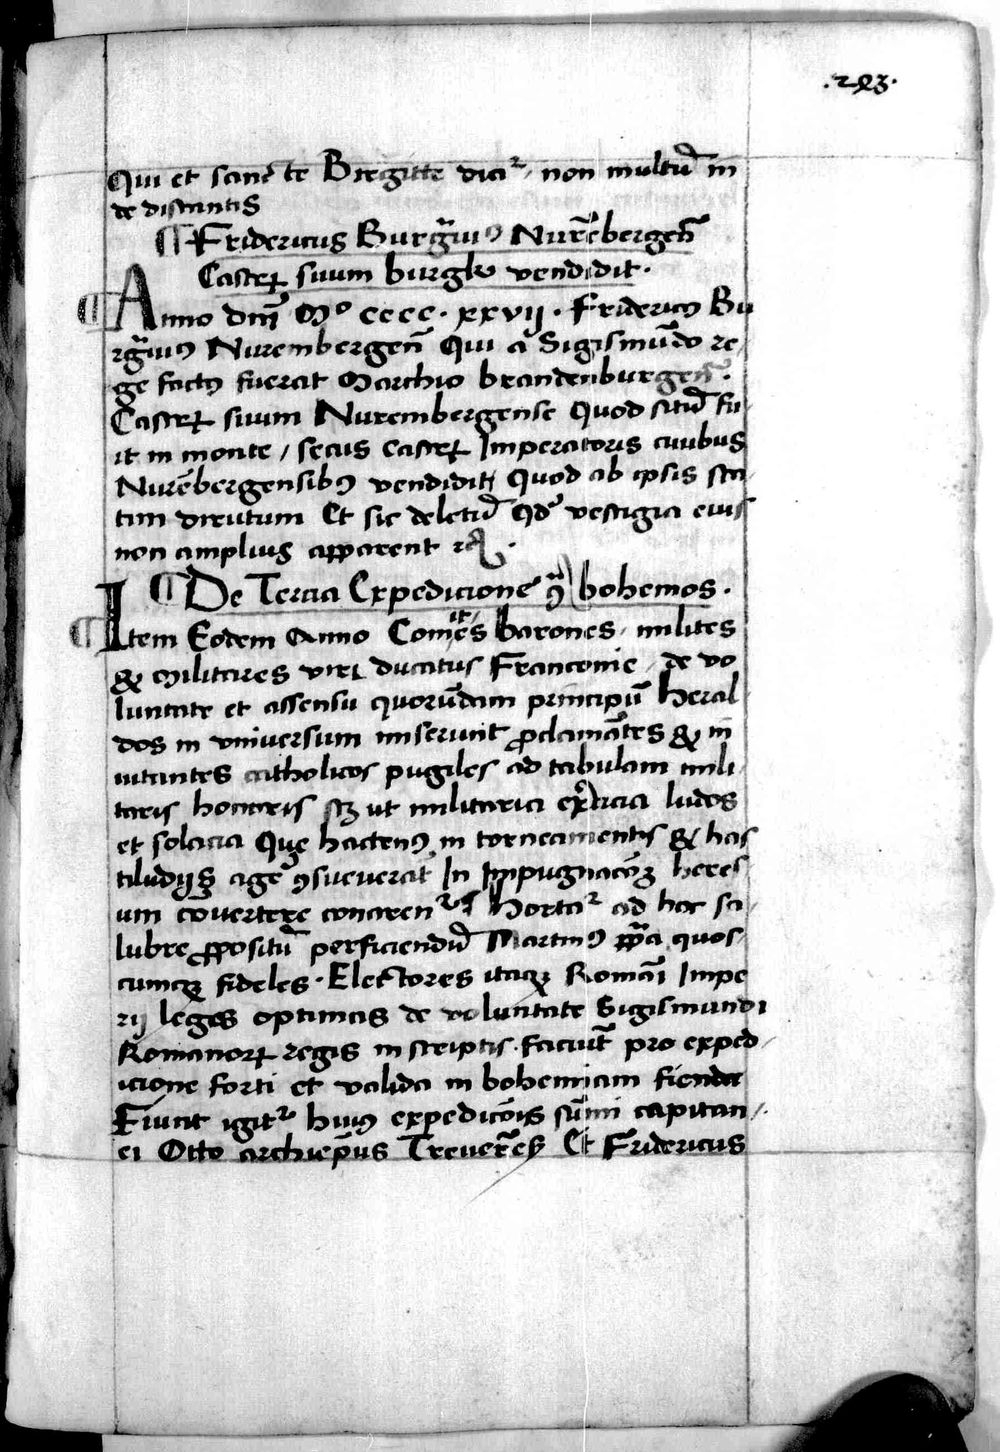 .293.
Qui et sancte Birgitte dicitᷣ / non multū in
de distantis
¶ Fridericus Burgᷓuiꝯ Nurēbergen̄
Castrꝫ suum burgk vendidit .
¶ Anno dn̄i Mº cccc . xxvij . Fridericꝯ Bu
rgᷓuiꝯ Nurembergen̄ Qui a Sigismūdo re /
ge factꝯ fuerat Marchio brandenburgen̄ .
Castrꝫ suum Nurembergense Quod sitū fu /
it in monte / secus castrꝫ Imperatoris ciuibus
Nurēbergensibꝯ vendidit / Quod ab ipsis sta /
tim dirutum Et sic deletū qd̓ vestigia eius
non amplius apparent ⁊c̄ .
¶ De Tercia Expedicione ꝯᷓ bohemos .
¶ Item Eodem Anno Comites barones / milites
& militares viri ducatus Franconie / de vo
luntate et assensu quorūdam principū heral
dos in vniversum miserunt ꝓclamātes & in
uitantes catholicos pugiles ad tabulam mili /
taris honoris scꝫ ut militaria exercicia ludos
et solacia Que hactenꝯ in torneamentis & has
tiludijs agē ꝯsueuerāt In Impugnacōꝫ heres /
um cōvertere conarenᷣ hortaᷣ ad hoc sa /
lubre ꝓpositū perficiendū Martinꝯ pᷓpa quos /
cumqꝫ fideles . Electores itaqꝫ Romāi Impe
rij leges optimas de voluntate Sigismundi
Romanorꝫ regis in scriptis faciūt pro exped /
icione forti et valida in bohemiam fienda
Fiunt igitᷣ huiꝯ expedicōis sūmi capitan /
ei Otto archiepūs Treverēs Et Fridericus